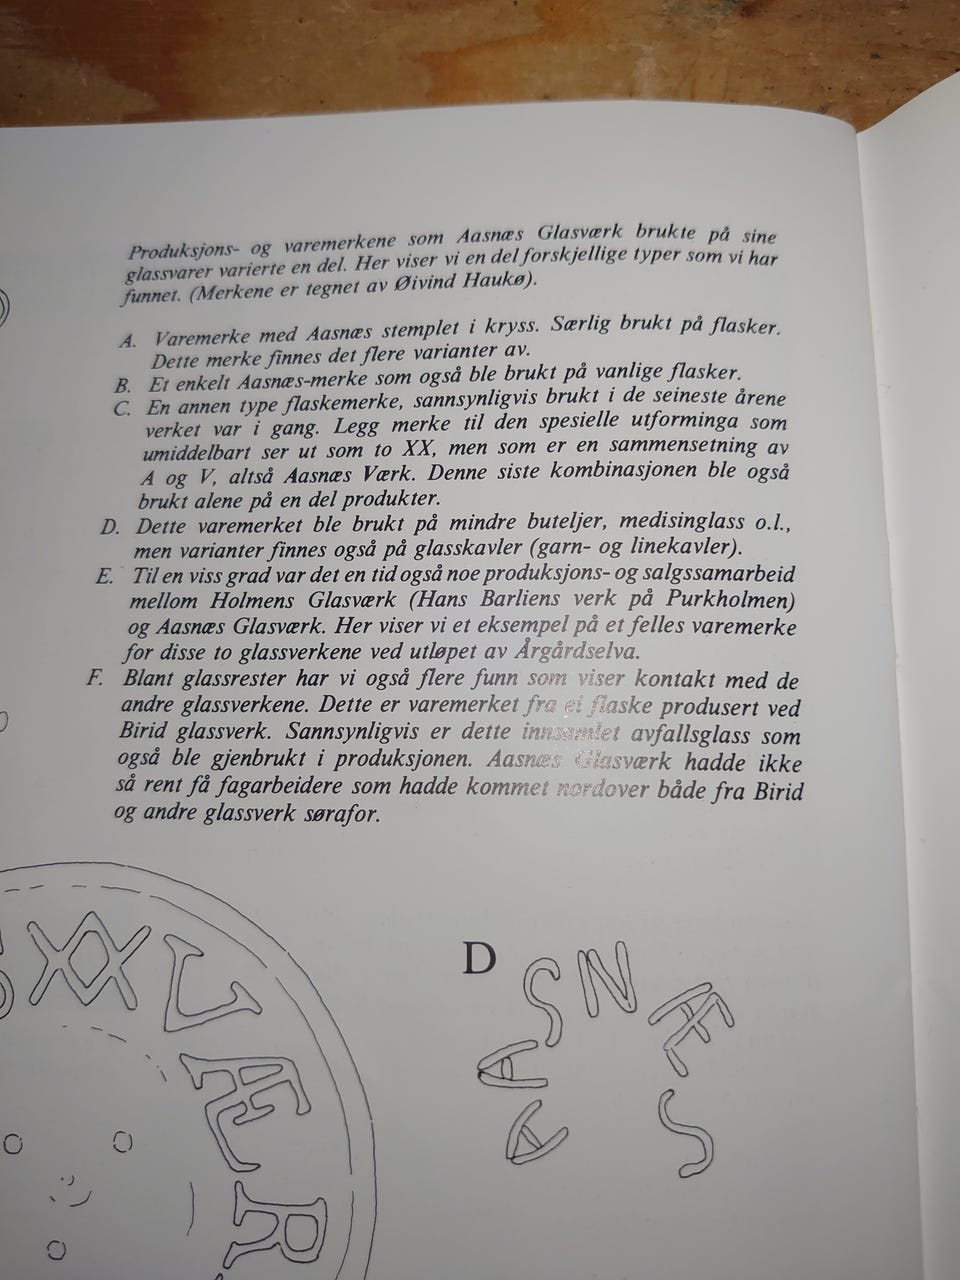 Produksjons- og varemerkene som Aasnæs Glasværk brukte på sine
glassvarer varierte en del. Her viser vi en del forskjellige typer som vi har
funnet. (Merkene er tegnet av Øivind Haukø).
A. Varemerke med Aasnæs stemplet i kryss. Særlig brukt på flasker.
Dette merke finnes det flere varianter av.
B. Et enkelt Aasnæs-merke som også ble brukt på vanlige flasker.
C. En annen type flaskemerke, sannsynligvis brukt i de seineste årene
verket var i gang. Legg merke til den spesielle utforminga som
umiddelbart ser ut som to XX, men som er en sammensetning av
A og V, altså Aasnæs Værk. Denne siste kombinasjonen ble også
brukt alene på en del produkter.
D. Dette varemerket ble brukt på mindre buteljer, medisinglass o.l.,
men varianter finnes også på glasskavler (garn- og linekavler).
E. Til en viss grad var det en tid også noe produksjons- og salgssamarbeid
mellom Holmens Glasværk (Hans Barliens verk på Purkholmen)
og Aasnæs Glasværk. Her viser vi et eksempel på et felles varemerke
for disse to glassverkene ved utløpet av Årgårdselva.
F. Blant glassrester har vi også flere funn som viser kontakt med de
andre glassverkene. Dette er varemerket fra ei flaske produsert ved
Birid glassverk. Sannsynligvis er dette innsamlet avfallsglass som
også ble gjenbrukt i produksjonen. Aasnæs Glasværk hadde ikke
så rent få fagarbeidere som hadde kommet nordover både fra Birid
og andre glassverk sørafor.
S XX VÆR
D
AASNÆS